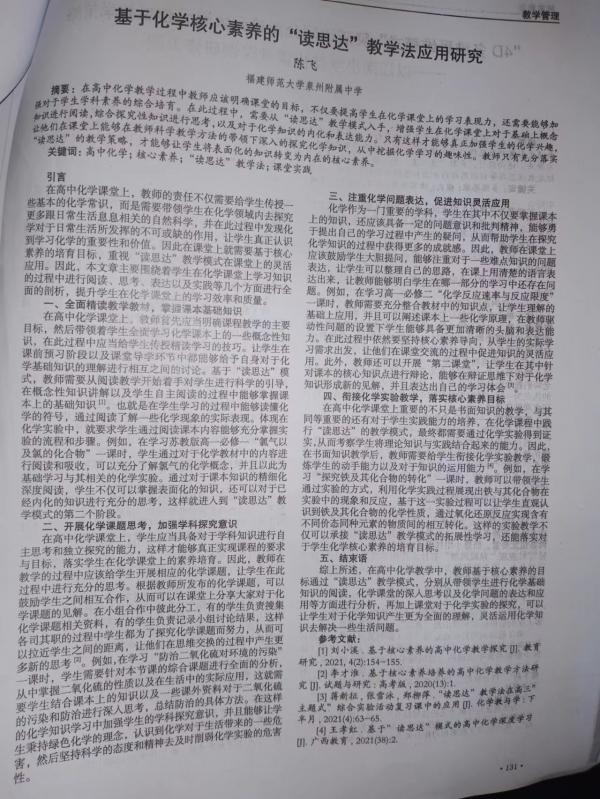 教学管理
基于化学核心素养的“读思达”教学法应用研究
陈飞
福建师范大学泉州附属中学
摘要：在高中化学教学过程中教师应该明确课堂的目标，不仅要提高学生在化学课堂上的学习表现力，还需要能够加
强对于学生学科素养的综合培育。在此过程中，需要从“读思达”教学模式入手，增强学生在化学课堂上对于基础上概念
知识进行阅读，综合探究性知识进行思考，以及对于化学知识的内化和表达能力。只有这样才能够真正加强学生的化学兴趣，
让他们在课堂上能够在教师科学教学方法的带领下深入的探究化学知识，从中挖掘化学学习的趣味性。教师只有充分落实
“读思达”的教学策略，才能够让学生将表面化的知识转变为内在的核心素养。
关键词：高中化学；核心素养；“读思达”教学法；课堂实践
引言
在高中化学课堂上，教师的责任不仅需要给学生传授一
些基本的化学常识，而是需要带领学生在化学领域内去探究
更多跟日常生活息息相关的自然科学，并在此过程中发现化
学对于日常生活所发挥的不可或缺的作用，让学生真正认识
到学习化学的重要性和价值。因此在课堂上就需要基于核心
素养的培育目标，重视“读思达”教学模式在课堂上的灵活
应用。因此，本文章主要围绕着学生在化学课堂上学习知识
的过程中进行阅读、思考、表达以及实践等几个方面进行全
面的阐析，提升学生在化学课堂上的学习效率和质量。
一、全面精读教学教材，掌握课本基础知识
在高中化学课堂上，教师首先应当明确课程教学的主要
目标，然后带领着学生全面学习化学课本上的一些概念性知
识，在此过程中应当给学生传授精读学习的技巧。让学生在
课前预习阶段以及课堂导学环节中都能够给予自身对于化
学基础知识的理解进行相互之间的讨论。基于“读思达”模
式，教师需要从阅读教学开始着手对学生进行科学的引导，
在概念性知识讲解以及学生自主阅读的过程中能够掌握课
本上的基础知识[1]。也就是在学生学习的过程中能够读懂化
学的符号，通过阅读了解一些化学现象的实际表现，体现在
化学实验中，就要求学生通过阅读课本内容能够充分掌握实
验的流程和步骤。例如，在学习苏教版高一必修一“氯气以
及氯的化合物”一课时，学生通过对于化学教材中的内容进
行阅读和吸收，可以充分了解氯气的化学概念，并且以此为
基础学习与其相关的化学实验。通过对于课本知识的精细化
深度阅读，学生不仅可以掌握表面化的知识，还可以对于已
经内化的知识进行充分的思考，这样就进入到“读思达”教
学模式的第二个阶段。
二、开展化学课题思考，加强学科探究意识
在高中化学课堂上，学生应当具备对于学科知识进行自
主思考和独立探究的能力，这样才能够真正实现课程的要求
与目标，落实学生在化学课堂上的素养培育。因此，教师在
教学的过程中应该给学生开展相应的化学课题，让学生在此
过程中进行充分的思考。根据教师所发布的化学课题，可以
鼓励学生之间相互合作，从而可以在课堂上分享大家对于化
学课题的见解。在小组合作中彼此分工，有的学生负责搜集
化学课题相关资料，有的学生负责记录小组讨论结果，这样
各司其职的过程中学生都为了探究化学课题而努力，从而可
以拉近学生之间的距离，让他们在思维交换的过程中产生更
多新的思考[2]。例如，在学习“防治二氧化硫对环境的污染”
一课时，学生需要针对本节课的综合课题进行全面的分析，
从中掌握二氧化硫的性质以及在生活中的实际应用，这就需
要学生结合课本上的知识以及一些课外资料对于二氧化硫
的污染和防治进行深入思考，总结防治的具体方法。在这样
的化学知识学习中加强学生的学科探究意识，并且能够让学
生秉持绿色化学的理念，认识到化学对于生活带来的一些危
害，然后坚持科学的态度和精神去及时削弱化学实验的危害
性。
三、注重化学问题表达，促进知识灵活应用
化学作为一门重要的学科，学生在其中不仅要掌握课本
上的知识，还应该具备一定的问题意识和批判精神，能够勇
于提出自己的学习过程中产生的疑问，从而帮助学生在探究
化学知识的过程中获得更多的成就感。因此，教师在课堂上
应该鼓励学生大胆提问，能够注重对于一些难点知识的问题
表达，让学生可以整理自己的思路，在课上用清楚的语言表
达出来，让教师能够明白学生在哪一部分的学习中还存在问
题。例如，在学习高一必修二“化学反应速率与反应限度”
一课时，教师需要充分整合教材中的知识点，让学生理解的
基础上应用，并且可以阐述课本上一些化学原理，在教师驱
动性问题的设置下学生能够具备更加清晰的头脑和表达能
力。在此过程中依然要坚持核心素养导向，从学生的实际学
习需求出发，让他们在课堂交流的过程中促进知识的灵活应
用。此外，教师还可以开展“第二课堂”，让学生在其中针
对课本的核心知识点进行辩论，能够在辩证思维下对于化学
知识形成新的见解，并且表达出自己的学习体会[3]。
四、衔接化学实验教学，落实核心素养目标
在高中化学课堂上重要的不只是书面知识的教学，与其
同等重要的还有对于学生实践能力的培养，在化学课程中践
行“读思达”的教学模式，最终都需要通过化学实验得到证
实，从而考察学生将理论知识与实践结合起来的能力。因此，
在书面知识教学后，教师需要给学生衔接化学实验教学，锻
炼学生的动手能力以及对于知识的运用能力[4]。例如，在学
习“探究铁及其化合物的转化”一课时，教师可以带领学生
通过实验的方式，利用化学实践过程展现出铁与其化合物在
实验中的现象和反应，基于这一实验过程可以让学生直观认
识到铁及其化合物的化学性质，通过氧化还原反应实现含有
不同价态同种元素的物质间的相互转化。这样的实验教学不
仅可以承接“读思达”教学模式的拓展性学习，还能落实对
于学生化学核心素养的培育目标。
五、结束语
综上所述，在高中化学教学中，教师基于核心素养的目
标通过“读思达”教学模式，分别从带领学生进行化学基础
知识的阅读，化学课堂的深入思考以及化学问题的表达和应
用等方面进行分析，再加上课堂对于化学实验的探究，可以
让学生对于化学知识产生更为全面的理解，灵活运用化学知
识去解决一些生活问题。
参考文献：
[1] 刘小溪．基于核心素养的高中化学教学探究[J]．教育
研究，2021,4(2):154-155.
[2] 李才准．基于核心素养培养的高中化学教学方法研
究[J]．试题与研究：高考版，2020(13):1.
[3] 蒋新征，张雪冰，郑柳萍．“读思达”教学法在高三“
主题式”综合实验活动复习课中的应用[J]．化学教与学：下
半月，2021(4):63-65.
[4] 王孝虹．基于“读思达”模式的高中化学深度学习
[J]．广西教育，2021(38):2.
·131·